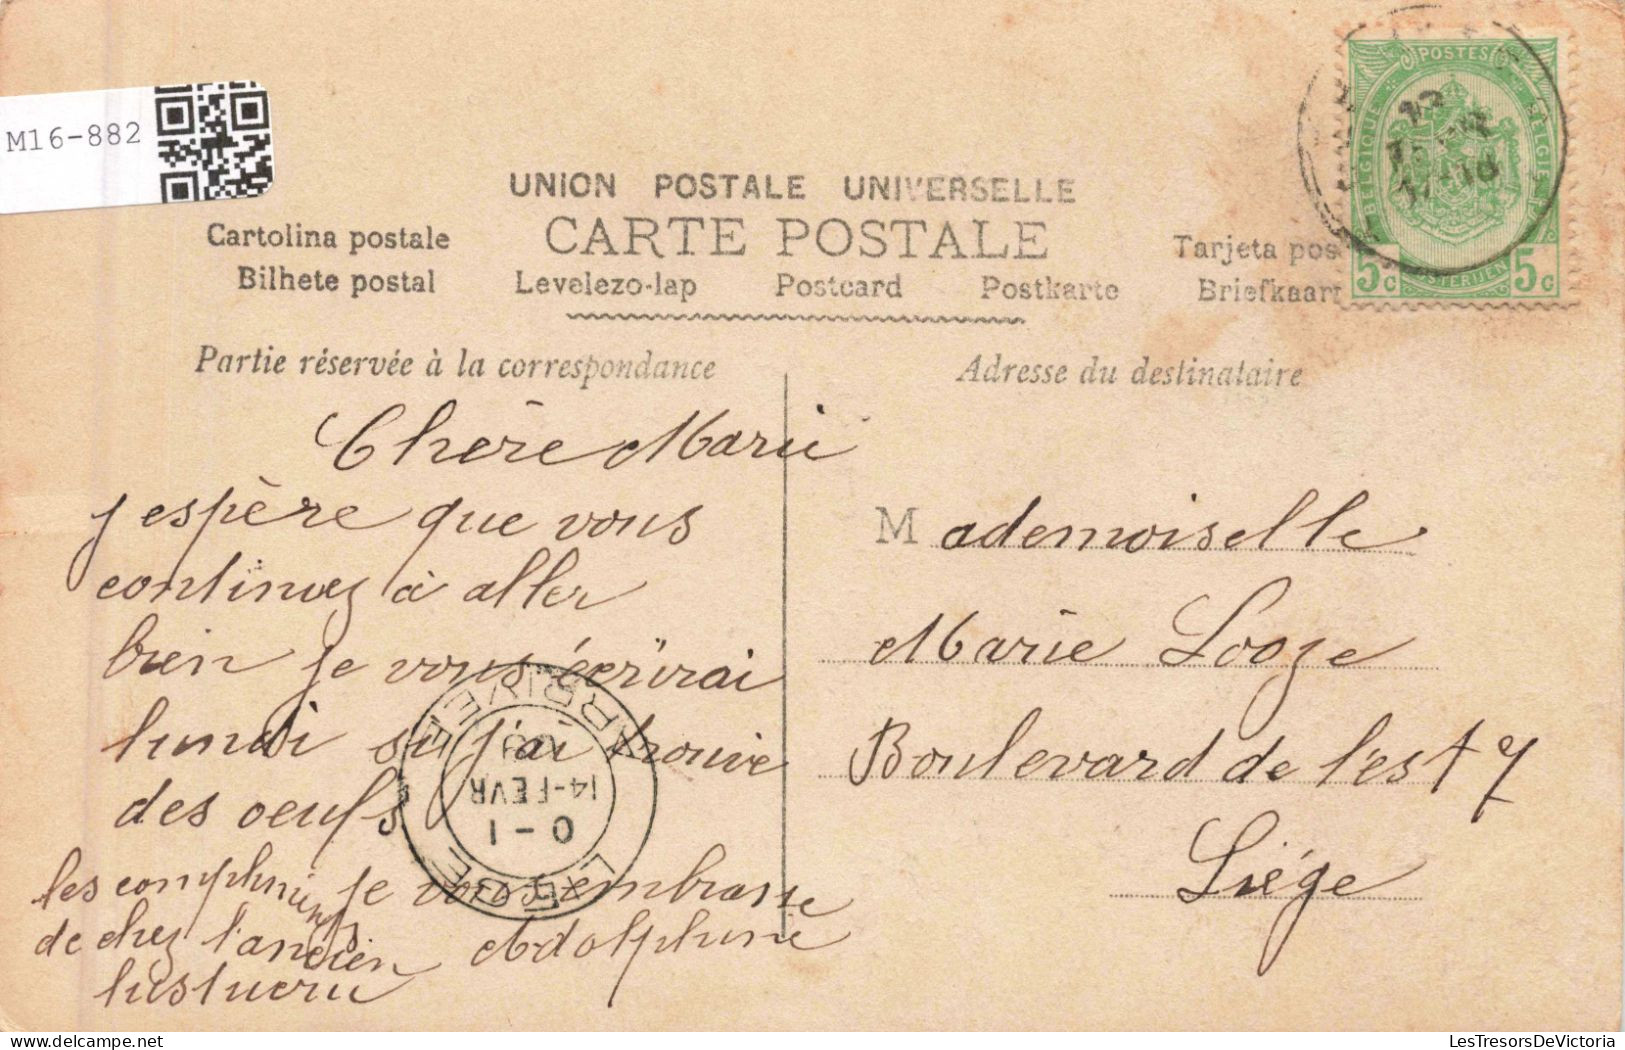 M16-882
UNION POSTALE UNIVERSELLE
CARTE POSTALE
Cartolina postale
Tarjeta pos
Bilhete postal Levelezo-lap Postcard Postkarte Briefkaart
Partie réservée à la correspondance
Adresse du destinataire
POSTES
BELGIQUE
BELGIE
5c 5c
Chère Marie
j espère que vous
continuez à aller
bien je vous écrirai
lundi si j'ai trouve
des oeufs
les compliments je vous embrasse
de chez l'ancien Adolphine
Mademoiselle
Marie Looze
Boulevard de l'est 7
Liége
LIEGE
ARRIVEE
0-1
14-FEVR
LesTresorsDeVictoria